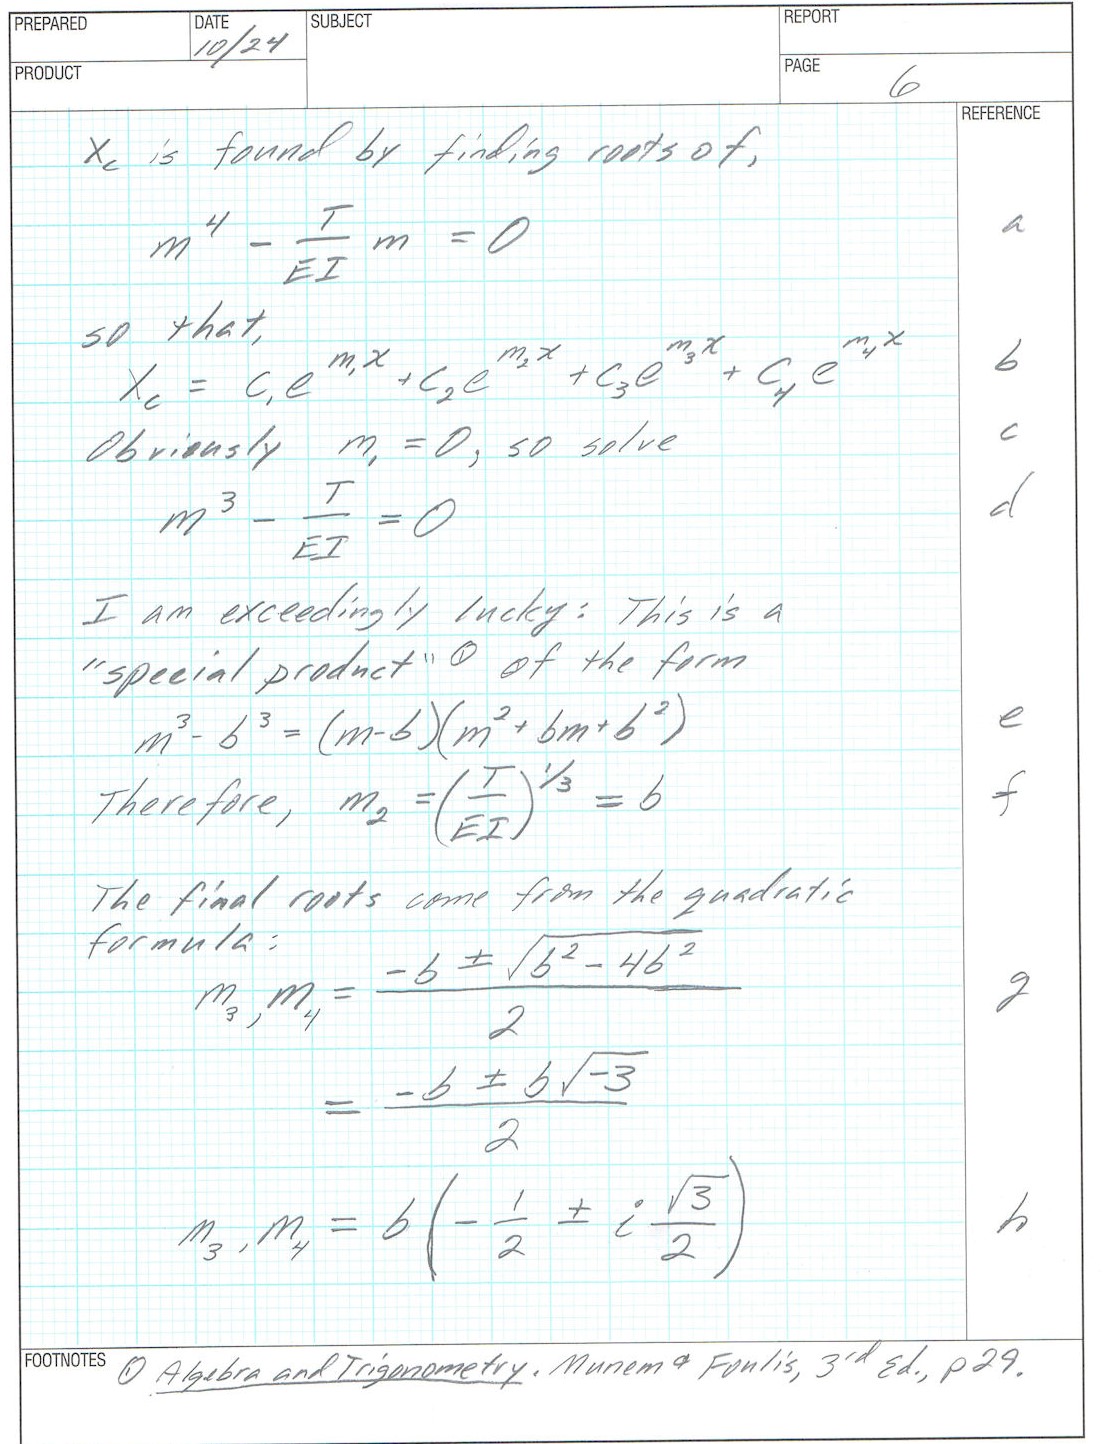 PREPARED
DATE
10/24
SUBJECT
REPORT
PRODUCT
PAGE
6
REFERENCE
X_c is found by finding roots of,
m^4 - T/EI m = 0 a
so that,
X_c = C_1 e^{m_1 x} + C_2 e^{m_2 x} + C_3 e^{m_3 x} + C_4 e^{m_4 x} b
Obviously m_1 = 0, so solve c
m^3 - T/EI = 0 d
I am exceedingly lucky: This is a
"special product" ① of the form
m^3 - b^3 = (m-b)(m^2 + bm + b^2) e
Therefore, m_2 = (T/EI)^{1/3} = b f
The final roots come from the quadratic
formula:
m_3, m_4 = (-b ± √(b^2 - 4b^2))/2 g
= (-b ± b√-3)/2
m_3, m_4 = b(-1/2 ± i √3/2) h
FOOTNOTES ① Algebra and Trigonometry. Munem & Foulis, 3rd Ed., p29.